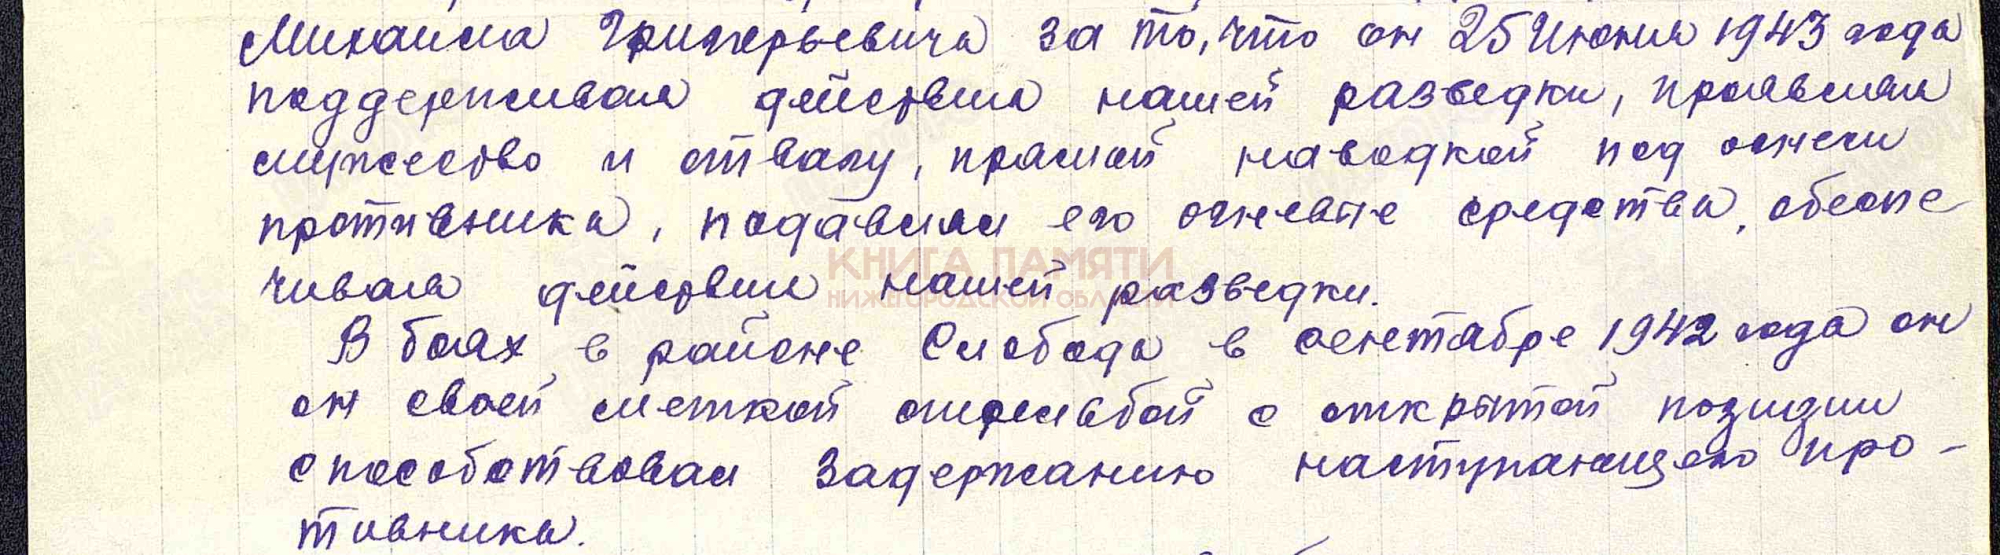 Михаила Григорьевича за то, что он 25 Июня 1943 года
поддерживая действия нашей разведки, проявляя
мужество и отвагу, прямой наводкой под огнем
противника, подавили его огневые средства, обеспе-
чивая действии нашей разведки.
КНИГА ПАМЯТИ
НИЖЕГОРОДСКОЙ ОБЛАСТИ
В боях в районе Слобода в сентябре 1942 года он
он своей меткой стрельбой с открытой позиции
способствовал задержанию наступающего про-
тивника.